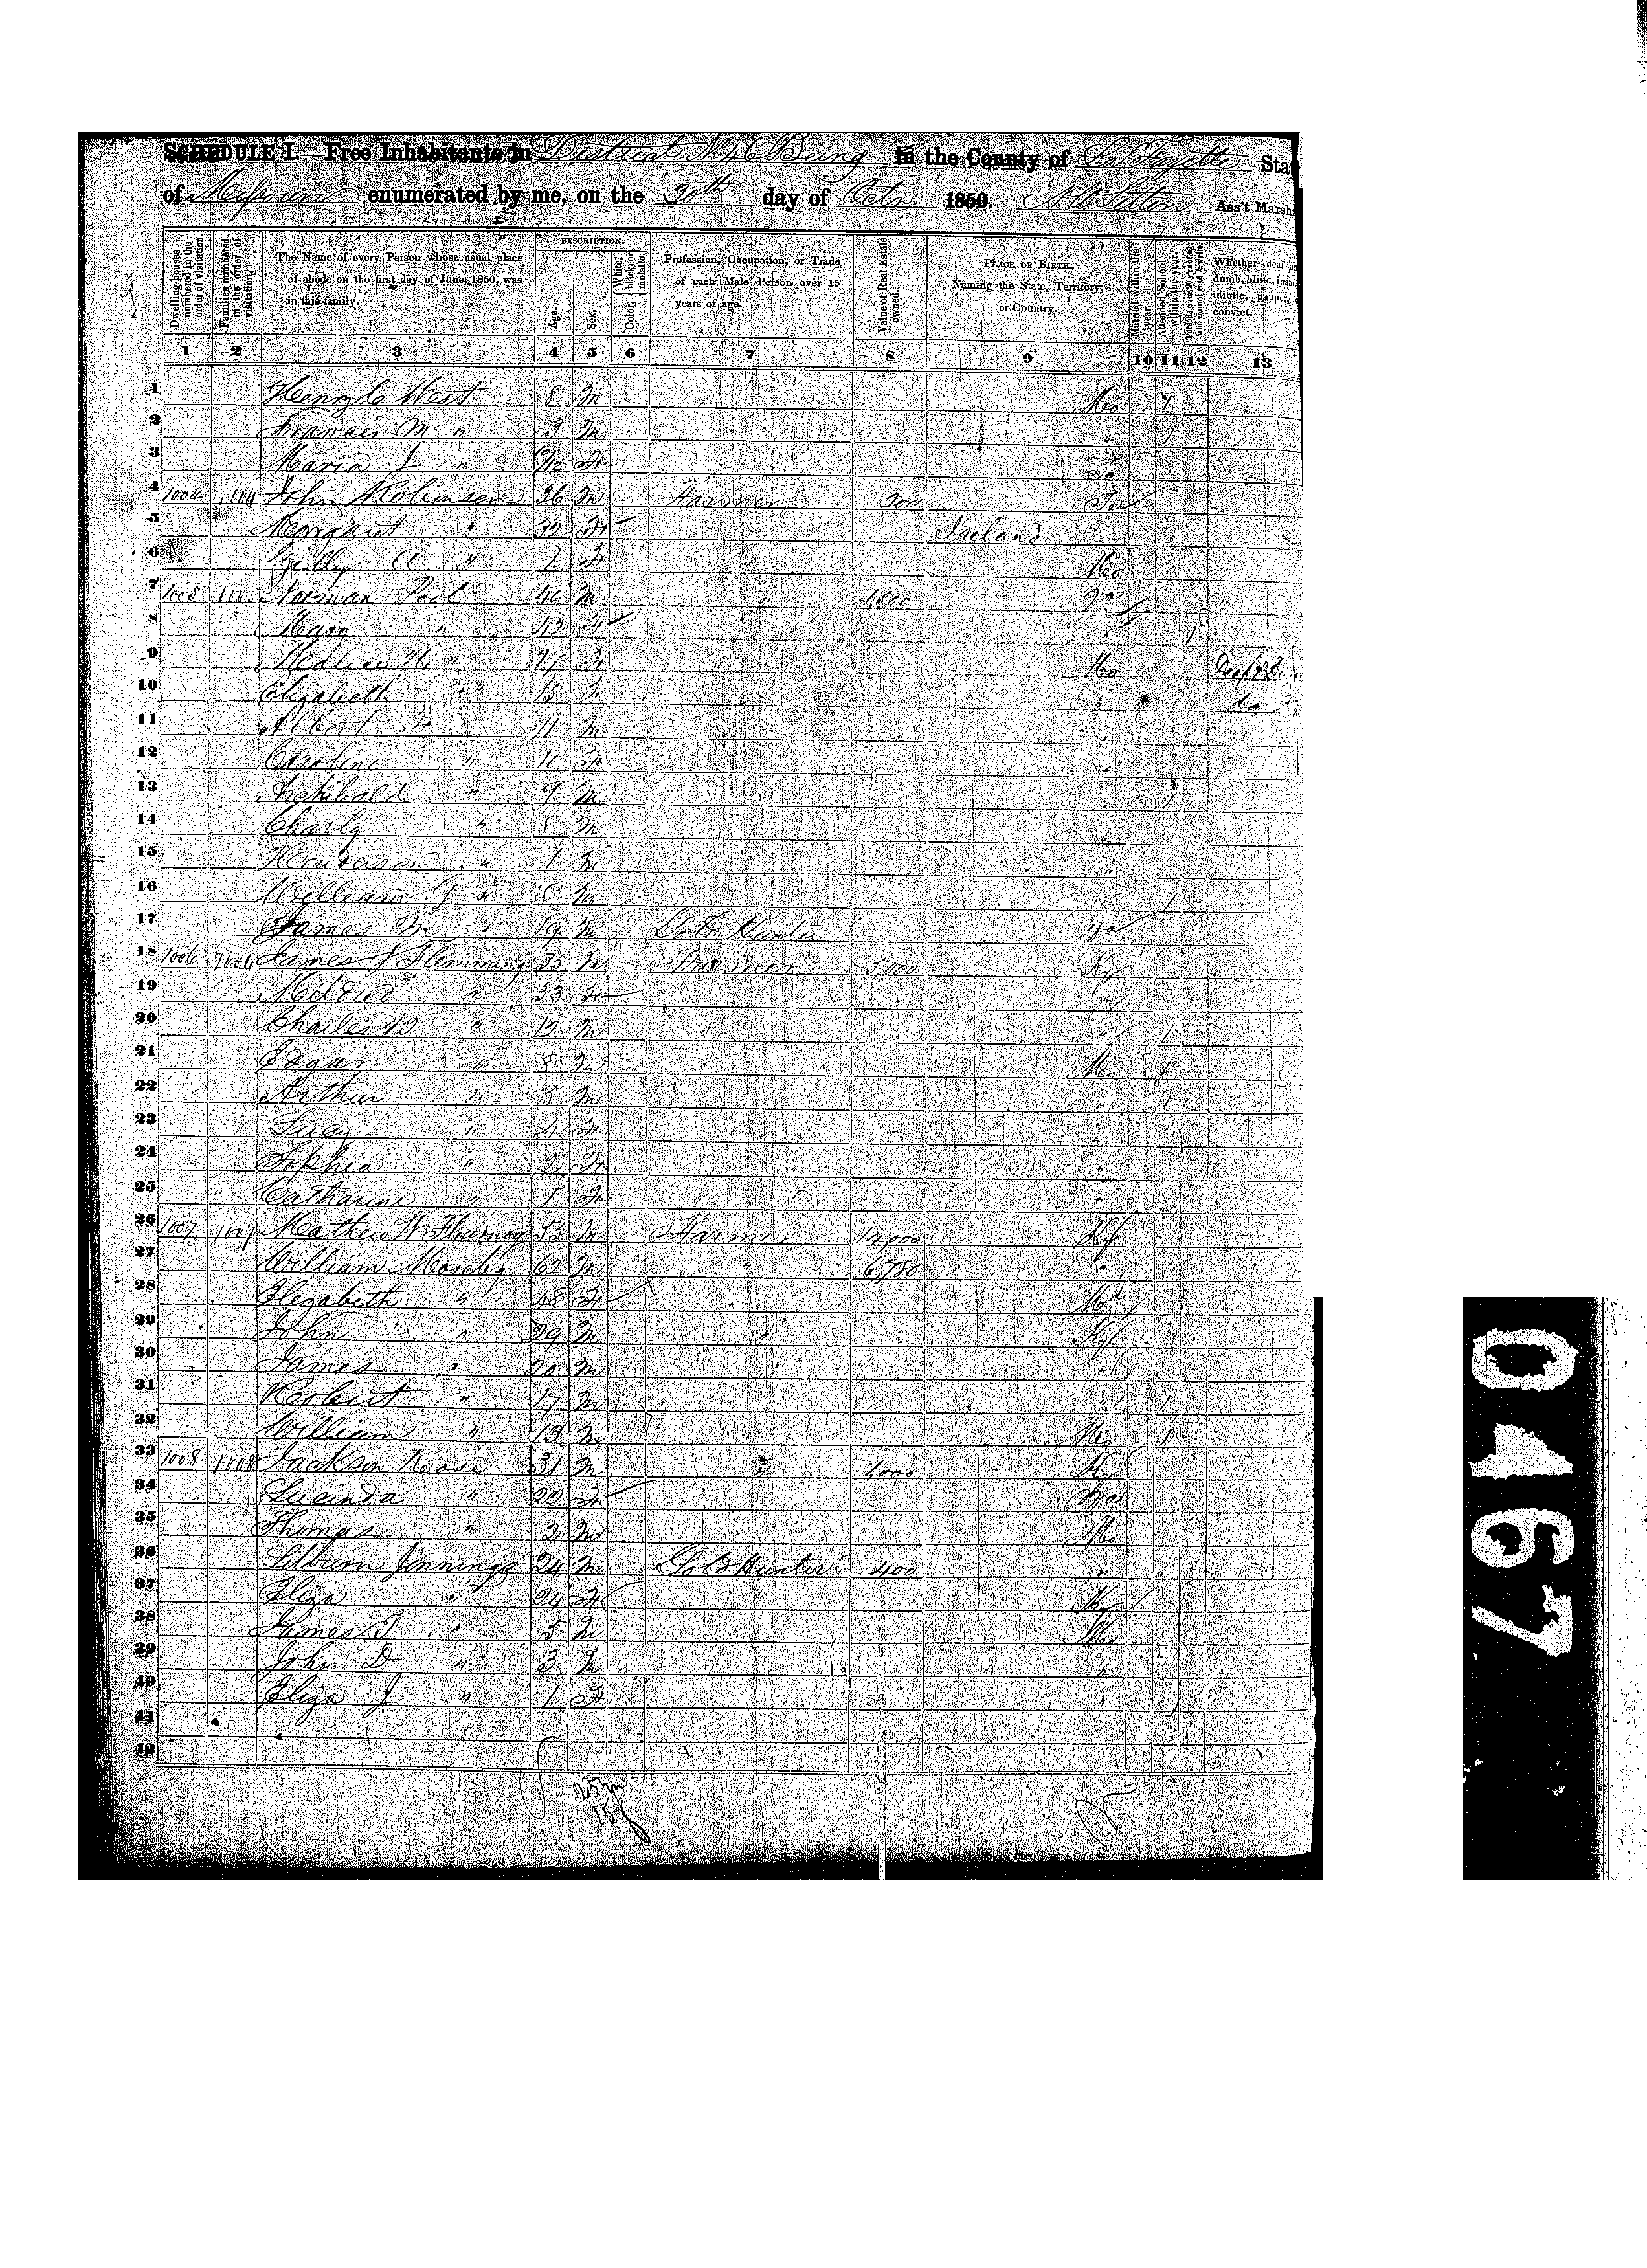 SCHEDULE I. Free Inhabitants in District No 46 Being in the County of La Fayette Sta
of Missouri enumerated by me, on the 30th day of Octr 1850. Ass't Marsh
Dwelling-houses numbered in the order of visitation.
Families numbered in the order of visitation.
The Name of every Person whose usual place of abode on the first day of June, 1850, was in this family.
DESCRIPTION.
Age.
Sex.
Color, White, black, or mulatto.
Profession, Occupation, or Trade of each Male Person over 15 years of age.
Value of Real Estate owned.
PLACE OF BIRTH. Naming the State, Territory, or Country.
Married within the year.
Attended School within the year.
Persons over 20 years of age who cannot read & write.
Whether deaf and dumb, blind, insane, idiotic, pauper, convict.
1 2 3 4 5 6 7 8 9 10 11 12 13
1 Henry C West 8 M Mo 1
2 Francis M " 3 M " 1
3 Maria J " /12 F
4 1004 1004 John Robinson 36 M Farmer 200
5 Margaret " 32 F Ireland
6 A " 1 F Mo
7 1005 Norman Pool 40 M " Va
8 Mary " 43 F " 1
9 " F Mo Deaf &
10 Elizabeth " 15 F " do
11 Albert " 11 M "
12 Caroline " 11 F "
13 Archibald " 9 M " 1
14 Charly " 5 M "
15 Henderson " 1 M "
16 William G " 8 M " 1
17 James M " 19 M Go Hunter Va
18 1006 1006 James Flemming 35 M Farmer 5,000 Ky
19 Mildred " 33 F "
20 Charles B " 12 M " 1
21 Edgar " 8 M Mo 1
22 Arthur " 5 M " 1
23 Lucy " 4 F "
24 Sophia " 2 F "
25 Catharine " 1 F "
26 1007 1007 Mathew W Flournoy 53 M Farmer 14,000 Ky
27 William Moseby 62 M " 6,780 "
28 Elezabeth " 48 F Md
29 John " 29 M " Ky
30 James " 20 M "
31 Robert " 17 M " 1
32 William " 13 M Mo 1
33 1008 1008 Jackson 31 M " 1,000 Ky
34 Lucinda " 22 F Va
35 Thomas " 2 M Mo
36 Lilburn Jennings 24 M Gold Hunter 400 "
37 Eliza " 24 F Ky
38 James T " 5 M Mo
39 John D " 3 M "
40 Eliza J " 1 F "
41
42
25 m
15 f
0467